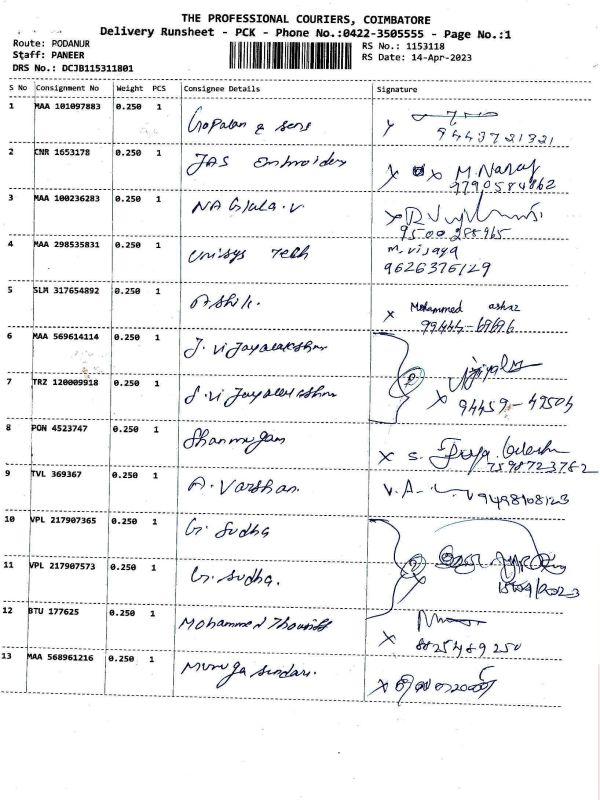 THE PROFESSIONAL COURIERS, COIMBATORE
Delivery Runsheet - PCK - Phone No.:0422-3505555 - Page No.:1
Route: PODANUR
RS No.: 1153118
Staff: PANEER
RS Date: 14-Apr-2023
DRS No.: DCJB115311801
S No Consignment No Weight PCS Consignee Details Signature
1 MAA 101097883 0.250 1 Gopalan & sons
9443721321
2 CNR 1653178 0.250 1 JAS Embroidery x x M.
9790584862
3 MAA 100236283 0.250 1 x R
9500 285965
4 MAA 298535831 0.250 1 unisys Tech m. vijaya
9626376129
5 SLM 317654892 0.250 1 Ashik. x Mohammed
99444-69696
6 MAA 569614114 0.250 1 J. vijayalakshmi
7 TRZ 120009918 0.250 1 J. vijayalakshmi x
94459-49504
8 PON 4523747 0.250 1 Shanmugam x S.
7598723782
9 TVL 369367 0.250 1 A. Varshan. V.A.
9498108123
10 VPL 217907365 0.250 1 G. Sudha
11 VPL 217907573 0.250 1 G. Sudha.
12 BTU 177625 0.250 1 Mohammed x
8825489250
13 MAA 568961216 0.250 1 Muruga x